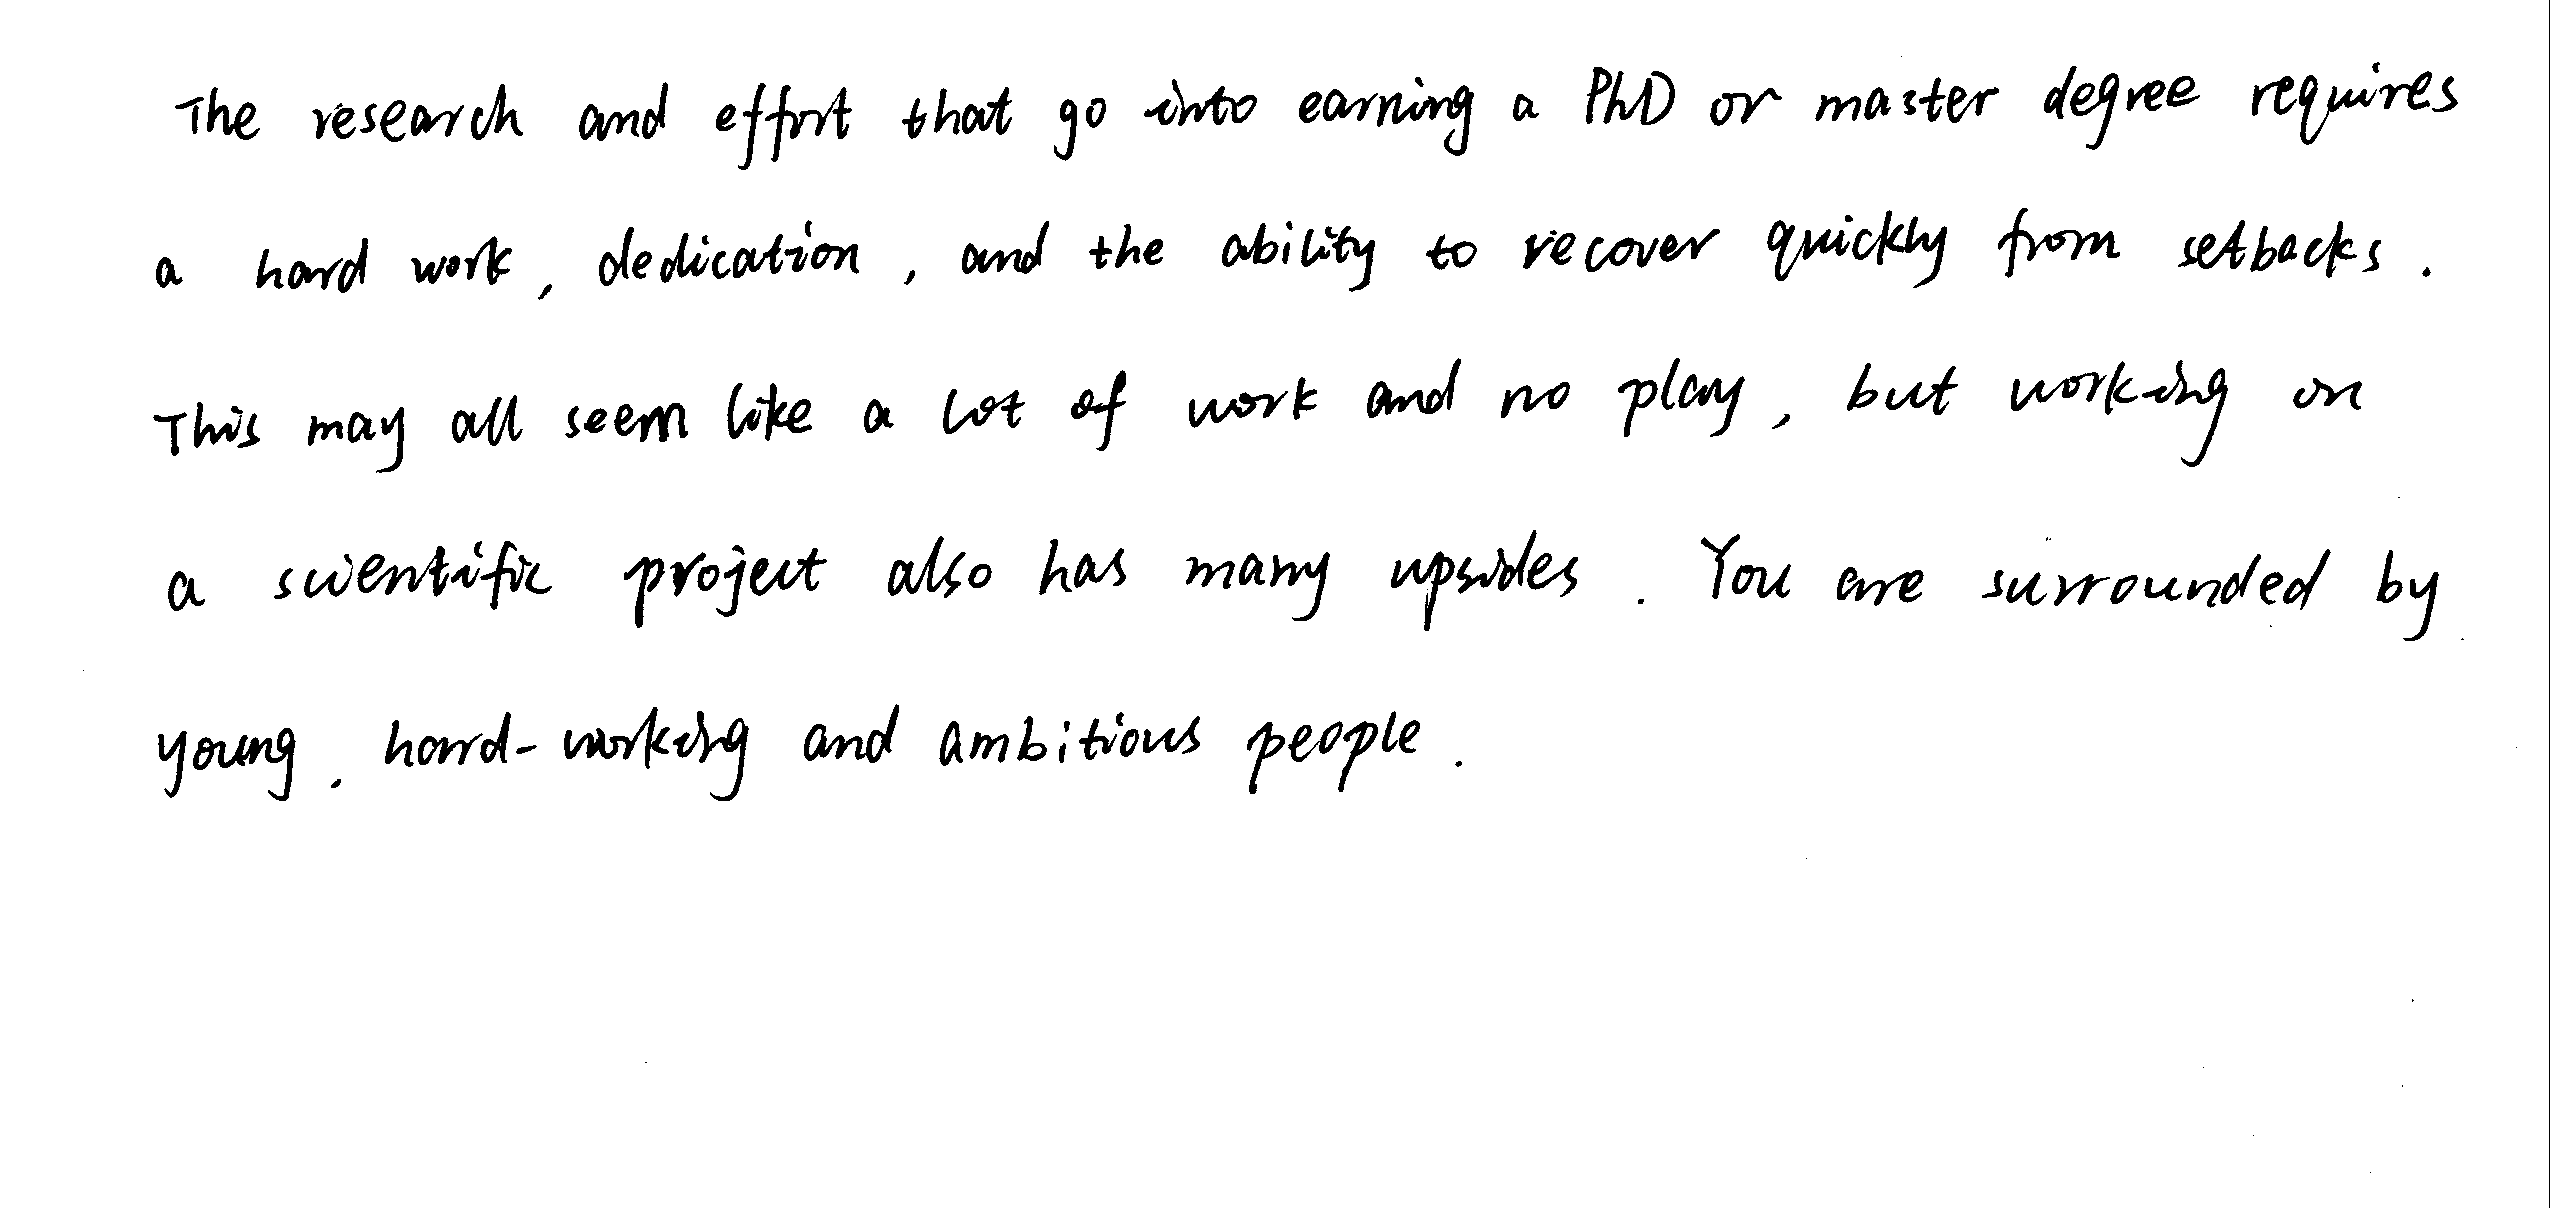 The research and effort that go into earning a PhD or master degree requires
a hard work, dedication, and the ability to recover quickly from setbacks.
This may all seem like a lot of work and no play, but working on
a scientific project also has many upsides. You are surrounded by
young, hard-working and ambitious people.